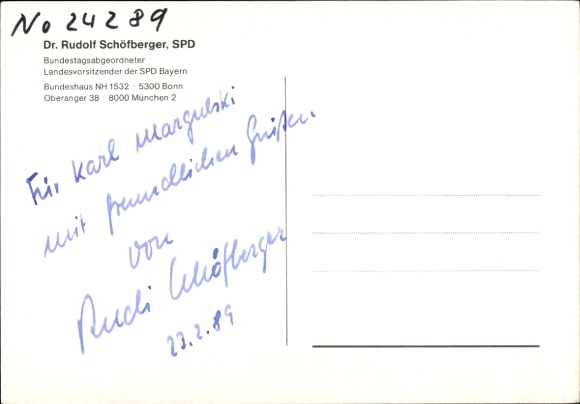 No 24 2 89
Dr. Rudolf Schöfberger, SPD
Bundestagsabgeordneter
Landesvorsitzender der SPD Bayern
Bundeshaus NH 1532 · 5300 Bonn
Oberanger 38 · 8000 München 2
Für Karl Margulski
mit freundlichen Grüßen
von
Rudi Schöfberger
23.2.89